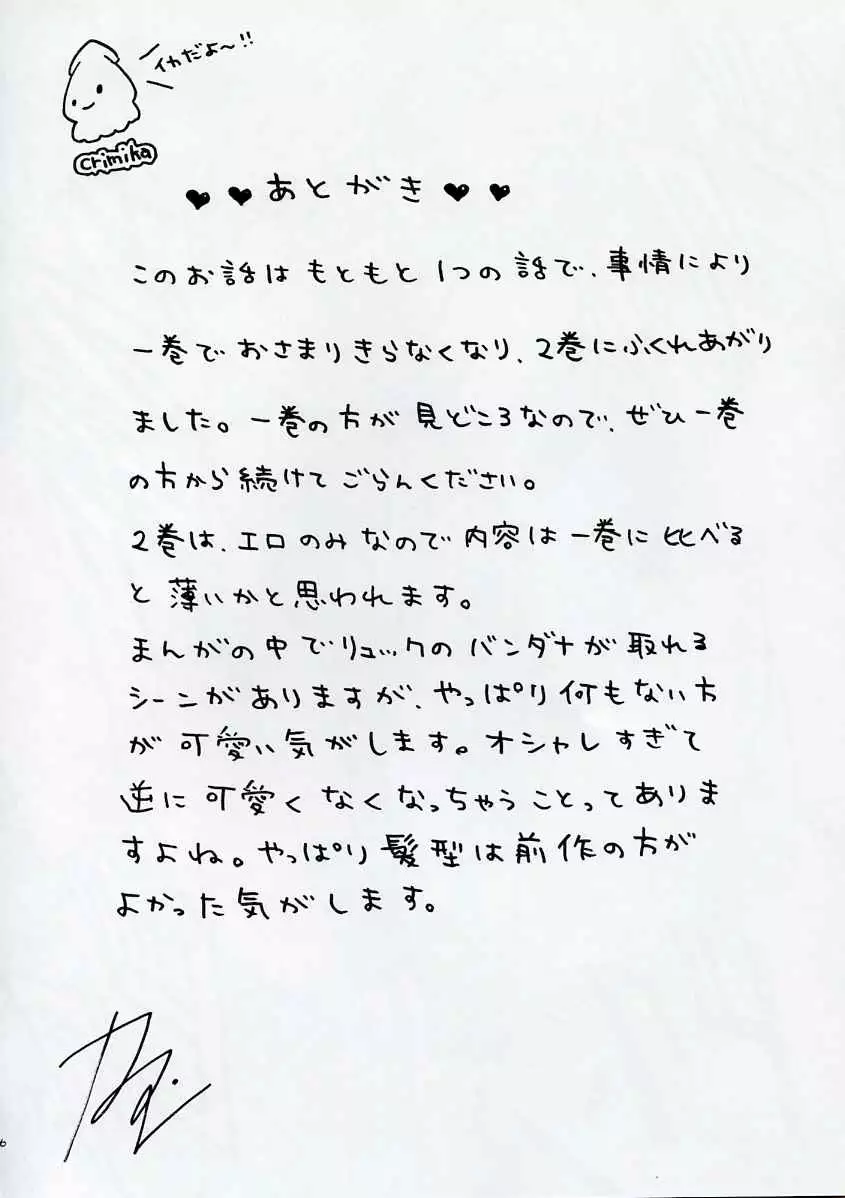 イカだよ〜!!
crimika
♥♥あとがき♥♥
このお話はもともと1つの話で、事情により
一巻でおさまりきらなくなり、2巻にふくれあがり
ました。一巻の方が見どころなので、ぜひ一巻
の方から続けてごらんください。
2巻は、エロのみなので内容は一巻に比べる
と薄いかと思われます。
まんがの中でリュックのバンダナが取れる
シーンがありますが、やっぱり何もない方
が可愛い気がします。オシャレすぎて
逆に可愛くなくなっちゃうことってありま
すよね。やっぱり髪型は前作の方が
よかった気がします。
6